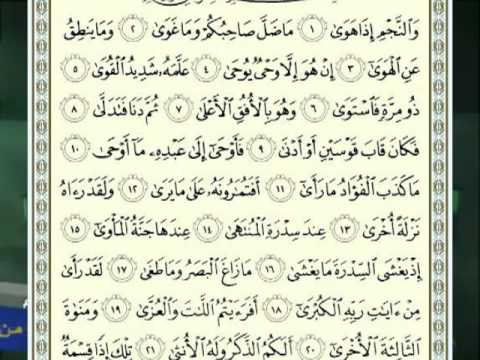 وَٱلنَّجۡمِ إِذَا هَوَىٰ ١ مَا ضَلَّ صَاحِبُكُمۡ وَمَا غَوَىٰ ٢ وَمَا يَنطِقُ
عَنِ ٱلۡهَوَىٰٓ ٣ إِنۡ هُوَ إِلَّا وَحۡيٌ يُوحَىٰ ٤ عَلَّمَهُۥ شَدِيدُ ٱلۡقُوَىٰ ٥
ذُو مِرَّةٍ فَٱسۡتَوَىٰ ٦ وَهُوَ بِٱلۡأُفُقِ ٱلۡأَعۡلَىٰ ٧ ثُمَّ دَنَا فَتَدَلَّىٰ ٨
فَكَانَ قَابَ قَوۡسَيۡنِ أَوۡ أَدۡنَىٰ ٩ فَأَوۡحَىٰٓ إِلَىٰ عَبۡدِهِۦ مَآ أَوۡحَىٰ ١٠
مَا كَذَبَ ٱلۡفُؤَادُ مَا رَأَىٰٓ ١١ أَفَتُمَٰرُونَهُۥ عَلَىٰ مَا يَرَىٰ ١٢ وَلَقَدۡ رَءَاهُ
نَزۡلَةً أُخۡرَىٰ ١٣ عِندَ سِدۡرَةِ ٱلۡمُنتَهَىٰ ١٤ عِندَهَا جَنَّةُ ٱلۡمَأۡوَىٰٓ ١٥
إِذۡ يَغۡشَى ٱلسِّدۡرَةَ مَا يَغۡشَىٰ ١٦ مَا زَاغَ ٱلۡبَصَرُ وَمَا طَغَىٰ ١٧ لَقَدۡ رَأَىٰ
مِنۡ ءَايَٰتِ رَبِّهِ ٱلۡكُبۡرَىٰٓ ١٨ أَفَرَءَيۡتُمُ ٱللَّٰتَ وَٱلۡعُزَّىٰ ١٩ وَمَنَوٰةَ
ٱلثَّالِثَةَ ٱلۡأُخۡرَىٰٓ ٢٠ أَلَكُمُ ٱلذَّكَرُ وَلَهُ ٱلۡأُنثَىٰ ٢١ تِلۡكَ إِذٗا قِسۡمَةٞ
من